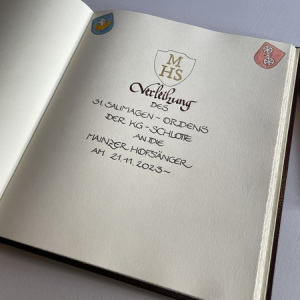 M
HS
Verleihung
DES
51. SAUMAGEN-ORDENS
DER KG-SCHLOTTE
AN DIE
MAINZER HOFSÄNGER
AM 21.11.2023~